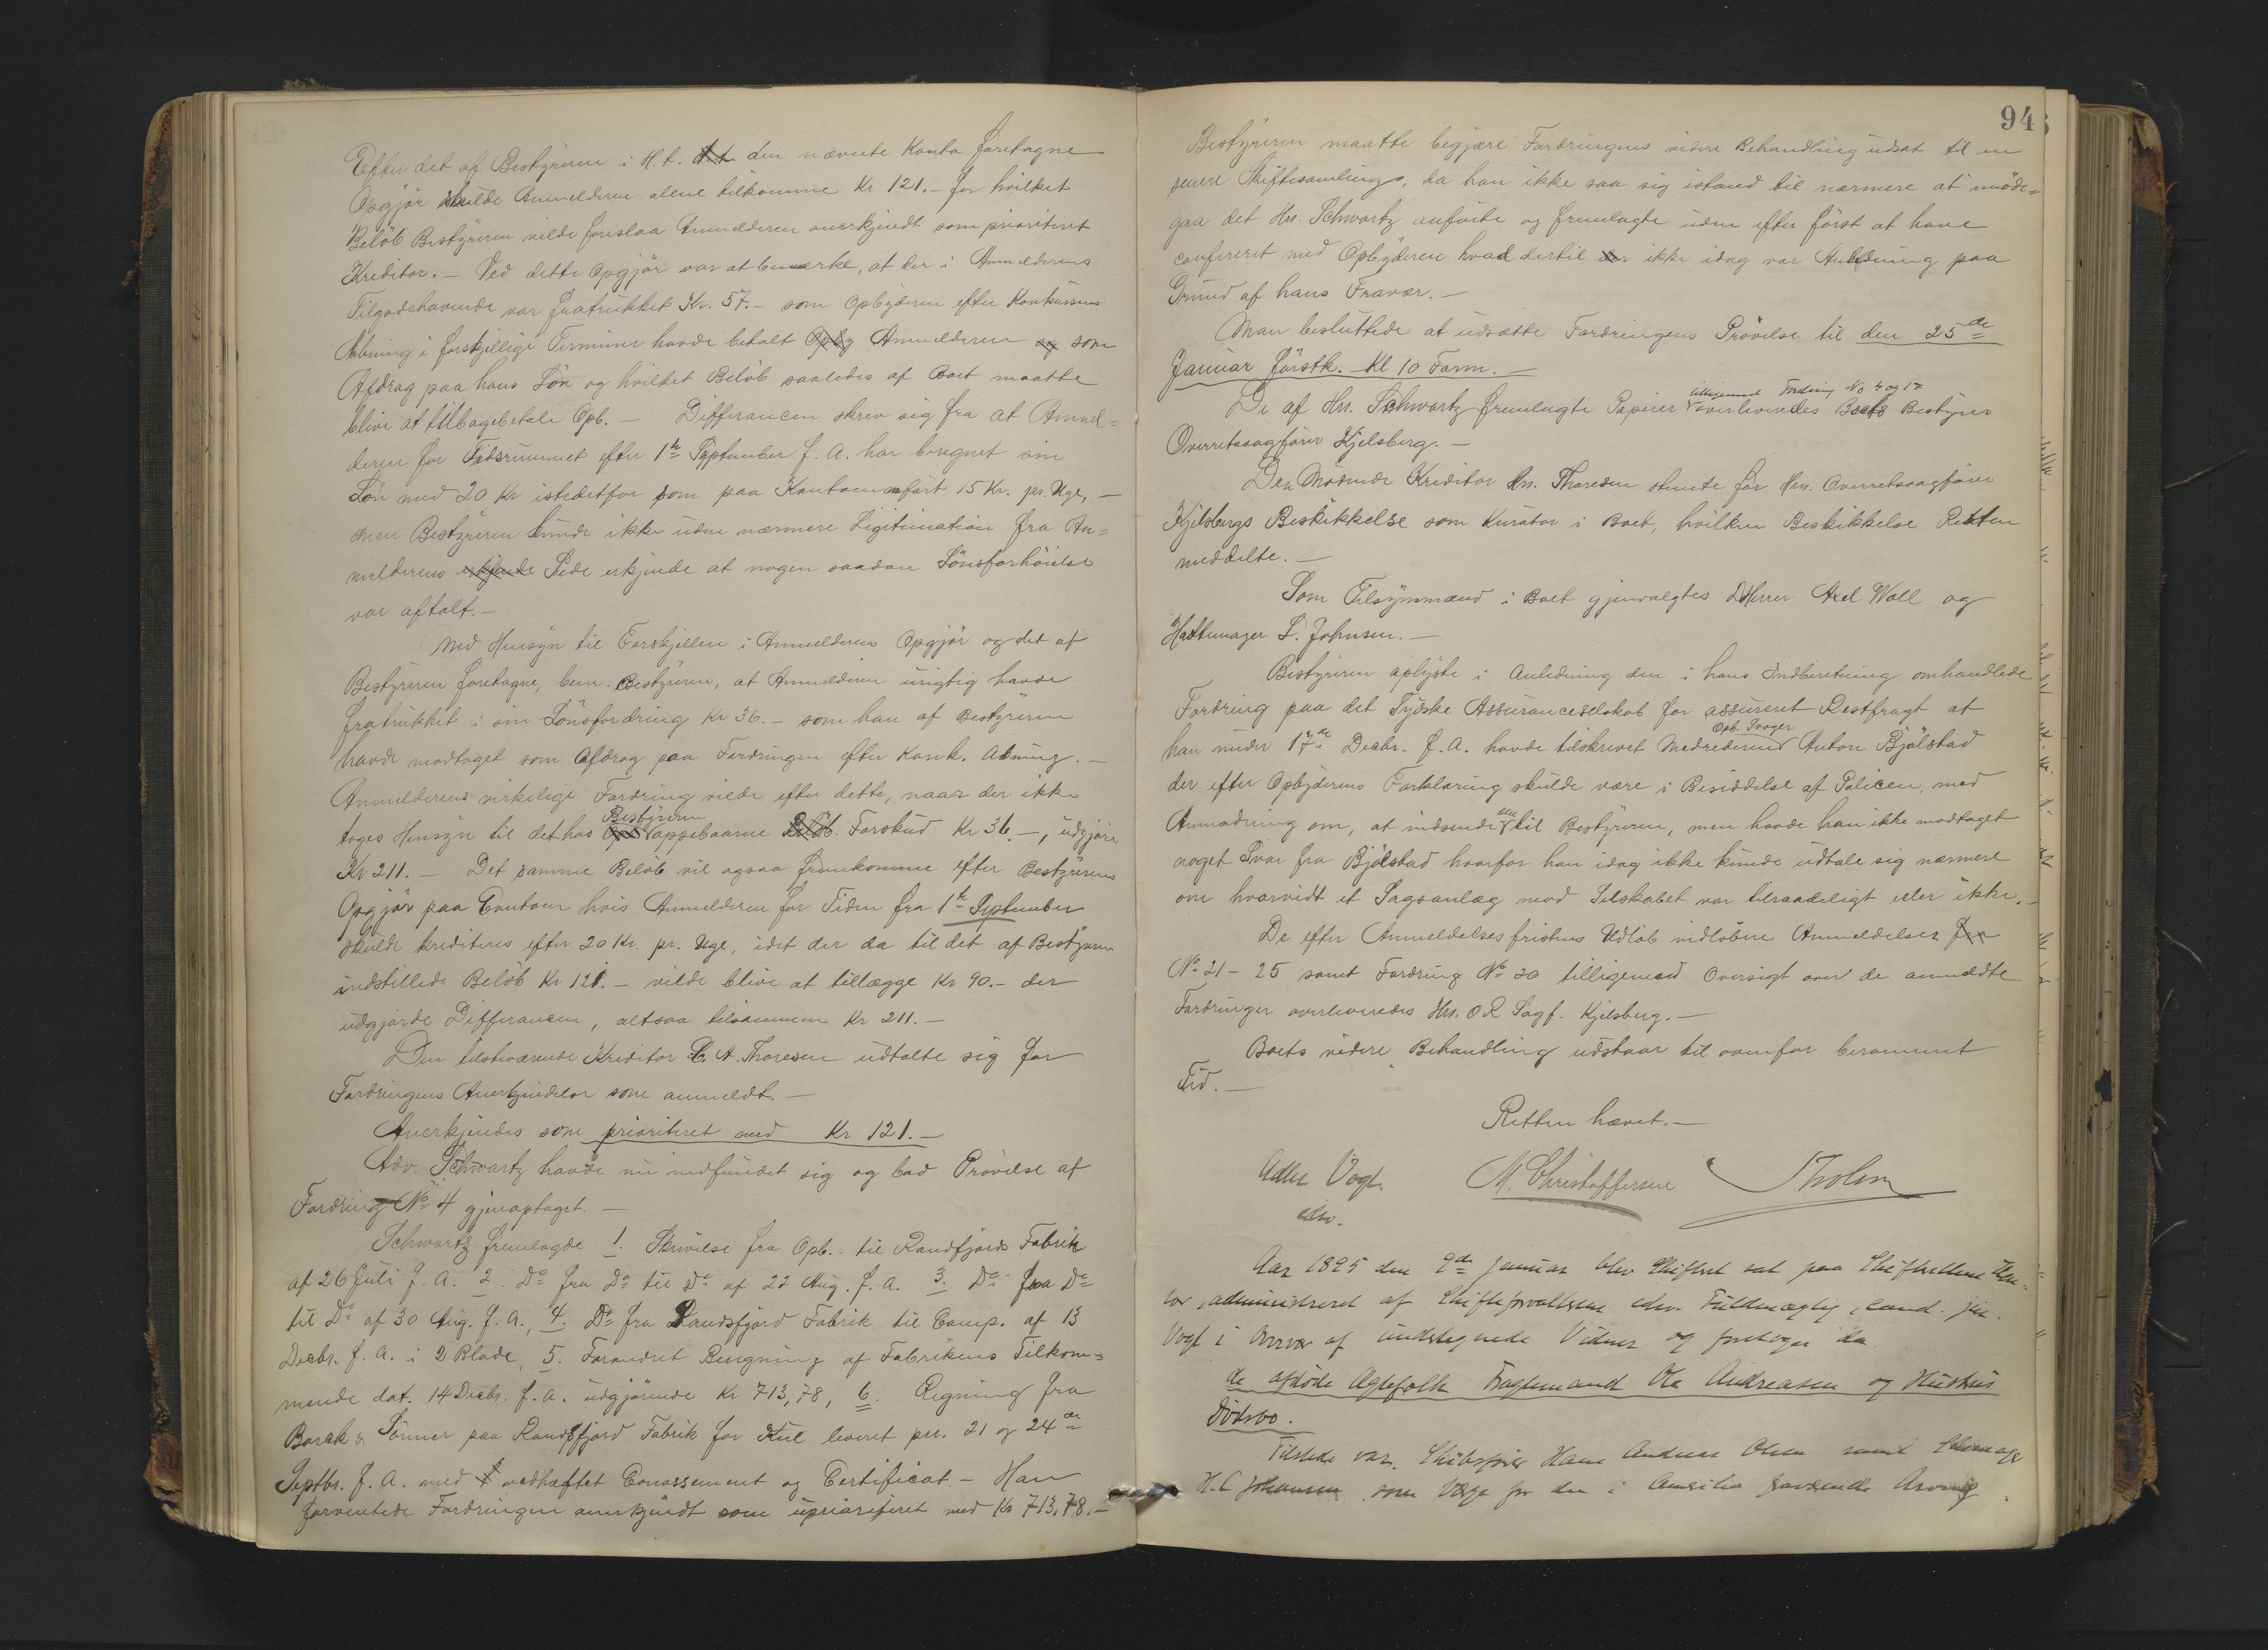 Efter det af Bestyreren i H. t. den nævnte Konto foretagne
Opgjör skulde Anmelderen alene tilkomme Kr 121.- for hvilket
Belöb Bestyreren vilde foreslaa Anmelderen anerkjendt som prioriteret
Kreditor. - Ved dette Opgjör var at bemærke, at der i Anmelderens
Tilgodehavende var fratrukket Kr. 57.- som Opbyderen efter Konkursens
Aabning i forskjellige Terminer havde betalt Anmelderen som
Afdrag paa hans Lön og hvilket Belöb saaledes af Boet maatte
blive at tilbagebetale Opb. - Differancen skrev sig fra at Anmel=
deren for Tidsrummet efter 1ste September f. A. har beregnet sin
Lön med 20 Kr istedetfor som paa Kontoen anfört 15 Kr. pr. Uge, -
men Bestyreren kunde ikke uden nærmere Legitimation fra An=
melderens Side erkjende at nogen saadan Lönsforhöielse
var aftalt. -
Med Hensyn til Forskjellen i Anmelderens Opgjör og det af
Bestyreren foretagne, bem. Bestyreren, at Anmelderen urigtig havde
fratrukket i sin Lönsfordring Kr 36.- som han af Bestyreren
havde modtaget som Afdrag paa Fordringen efter Konk. Abning. -
Anmelderens virkelige Fordring vilde efter dette, naar der ikke
toges Hensyn til det hos Bestyreren oppebaarne Forskud Kr 36.-, udgjöre
Kr 211. - Det samme Belöb vil ogsaa fremkomme efter Bestyrerens
Opgjör paa Contoen hvis Anmelderen for Tiden fra 1ste September
skulde krediteres efter 20 Kr. pr. Uge, idet der da til det af Bestyreren
indstillede Belöb Kr 121.- vilde blive at tillægge Kr 90.- der
udgjorde Differancen, altsaa tilsammen Kr 211.-
Den tilstedeværende Kreditor C. A. Thoresen udtalte sig for
Fordringens Anerkjendelse som anmeldt. -
Anerkjendes som prioriteret med Kr 121.-
Adv. Schwartz havde nu indfundet sig og bad Prövelse af
Fordring No 4 gjenoptaget. -
Schwartz fremlagde 1. Skrivelse fra Opb. - til Randfjords Fabrik
af 26 Juli f. A. 2. Do fra Do til Do af 22 Aug. f. A. 3. Do fra Do
til Do af 30 Aug. f. A., 4. Do fra Randsfjord Fabrik til Comp. af 13
Decbr. f. A. i 2 Blade, 5. Forandret Beregning af Fabrikens Tilkom=
mende dat. 14 Decbr. f. A. udgjörende Kr 713,78, 6. Regning fra
Barak & Sönner paa Randsfjord Fabrik for Kul leveret pr. 21 og 24de
Septbr. f. A. med vedhæftet Conossement og Certificat - Han
forventede Fordringen anerkjendt som uprioriteret med Kr 713,78.-
94
Bestyreren maatte begjære Fordringens videre Behandling udsat til en
senere Skiftesamling, da han ikke saa sig istand til nærmere at imöde=
gaa det Hr. Schwartz anförte og fremlagte uden efter först at have
confereret med Opbyderen hvad dertil ikke idag var Anledning paa
Grund af hans Fravær. -
Man besluttede at udsætte Fordringens Prövelse til den 25de
Januar förstk. Kl 10 Form. -
tilligemed Fordring No 4 og 17
De af Hr. Schwartz fremlagte Papirer overleveredes Boets Bestyrer
Overretssagförer Kjelsberg. -
Den Mödende Kreditor Hr. Thoresen stemte for Hr. Overretssagförer
Kjelsbergs Beskikkelse som Kurator i Boet, hvilken Beskikkelse Retten
meddelte. -
Som Tilsynsmænd i Boet gjenvalgtes DHerrer Axel Wall og
Hattemager L. Johnsen. -
Bestyreren oplyste i Anledning den i hans Indberetning omhandlede
Fordring paa det Tydske Assuranceselskab for assureret Restfragt at
Opb. Svoger
han under 17de Decbr. f. A. havde tilskrevet Medrederen Anton Bjölstad
der efter Opbyderens Forklaring skulde være i Besiddelse af Policen, med
Anmodning om, at indsende den til Bestyreren, men havde han ikke modtaget
noget Svar fra Bjölstad hvorfor han idag ikke kunde udtale sig nærmere
om hvorvidt et Sagsanlæg mod Selskabet var tilraadeligt eller ikke. -
De efter Anmeldelsesfristens Udlöb indlöbne Anmeldelser
No 21 - 25 samt Fordring No 20 tilligemed Oversigt over de anmeldte
Fordringer overleveredes Hr. O R Sagf. Kjelsberg. -
Boets videre Behandling udstaar til ovenfor berammet
Tid. -
Retten hævet. -
Adler Vogt. M. Christoffersen Tholm
edsv.
Aar 1895 den 9de Januar blev Skifteret sat paa Skifterettens
administreret af Skifteforvalterens edsv. Fuldmægtig, cand. jur.
Vogt i Overvær af undertegnede Vidner og foretoges da
de afdöde Ægtefolk Fragtemand Ole Andreasen og Hustrus
Dödsbo.
Tilstede var Skibsförer Hans Andreas Olsen samt
H. C Johansen som Værge for den i Amerika fraværende Arving.